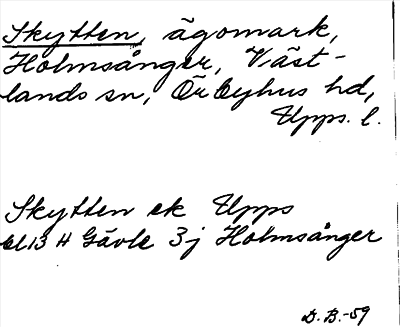 Skytten, ägomark,
Holmsånger, Väst-
lands sn, Örbyhus hd,
Upps. l.
Skytten ek Upps
bl 13 H Gävle 3j Holmsånger
D. B. -59